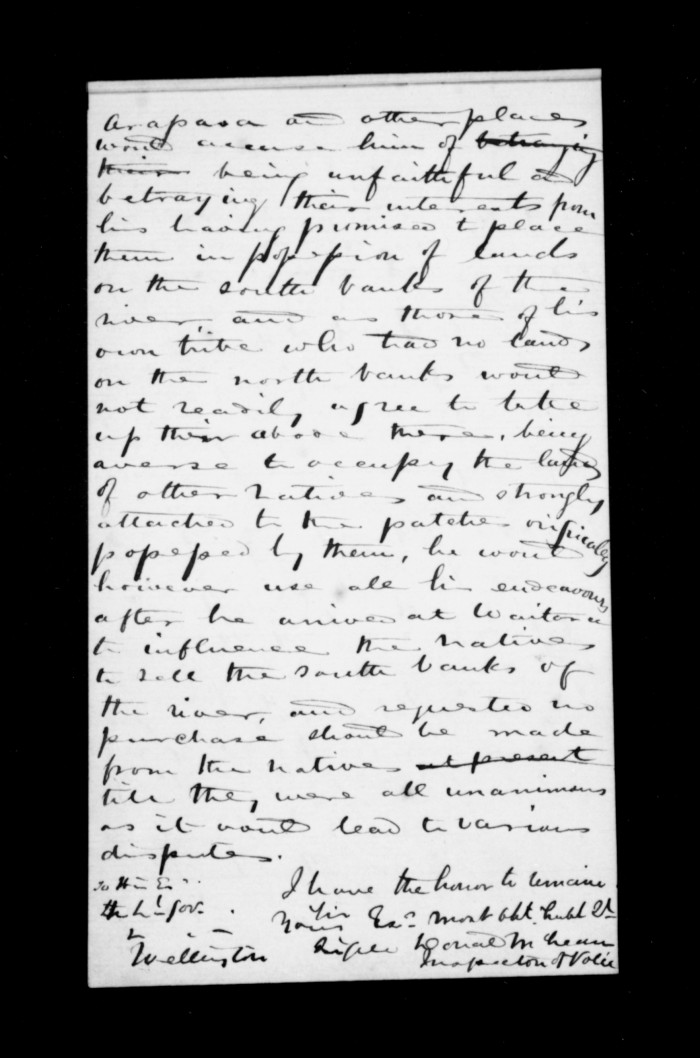 Arapaoa and other places
would accuse him of betraying
their being unfaithful and
betraying their interests from
his having promised to place
them in possession of lands
on the south banks of the
river, and as those of his
own tribe who had no lands
on the north banks would
not readily agree to take
up their abode there, being
averse to occupy the lands
of other natives and strongly
attached to the patches originally
possessed by them, he would
however use all his endeavours
after he arrives at Waitara
to influence the natives
to sell the south banks of
the river, and requested no
purchase should be made
from the natives at present
till they were all unanimous
as it would lead to various
disputes.
I have the honor to remain
To His Ex
the Lt Gov.
Sir
Your Ex.s most obt. hubl St
Wellington
Signed Donald McLean
Inspector of Police